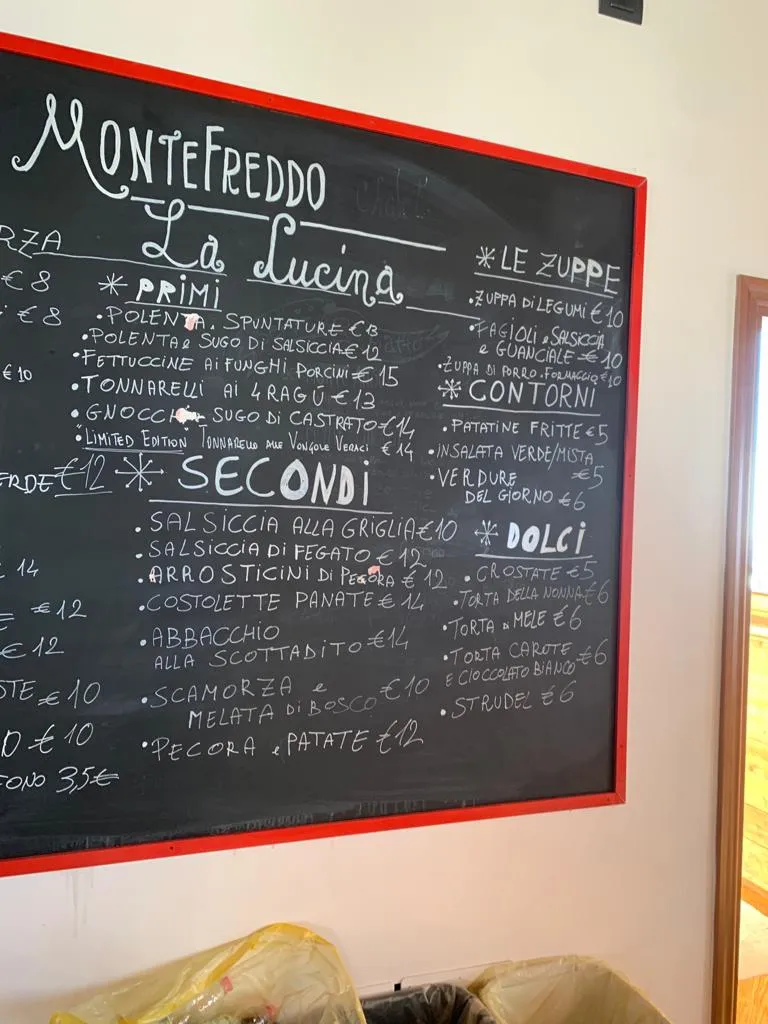 MONTEFREDDO
La Lucina
RZA
€ 8
€ 8
€ 10
ERDE €12
14
€12
€12
STE € 10
D € 10
FONO 3,5€
* PRIMI
• POLENTA SPUNTATURE € 13
• POLENTA e SUGO DI SALSICCIA € 12
• FETTUCCINE Ai FUNGHI PORCINI € 15
• TONNARELLI AI 4 RAGÙ € 13
• GNOCCHI SUGO DI CASTRATO € 14
• "LIMITED EDITION" TONNARELLO ALLE VONGOLE VERACI € 14
* SECONDI
• SALSICCIA ALLA GRIGLIA € 10
• SALSICCIA DI FEGATO € 12
• ARROSTICINI DI PECORA € 12
• COSTOLETTE PANATE € 14
• ABBACCHIO
ALLA SCOTTADITO € 14
• SCAMORZA e
MELATA DI BOSCO €10
• PECORA e PATATE €12
* LE ZUPPE
• ZUPPA DI LEGUMI € 10
• FAGIOLI e SALSICCIA
e GUANCIALE € 10
• ZUPPA DI PORRO FORMAGGIO €10
* CONTORNI
• PATATINE FRITTE € 5
• INSALATA VERDE/MISTA
€5
• VERDURE
DEL GIORNO € 6
* DOLCI
• CROSTATE € 5
• TORTA DELLA NONNA € 6
• TORTA DI MELE € 6
• TORTA CAROTE
E CIOCCOLATO BIANCO € 6
• STRUDEL € 6